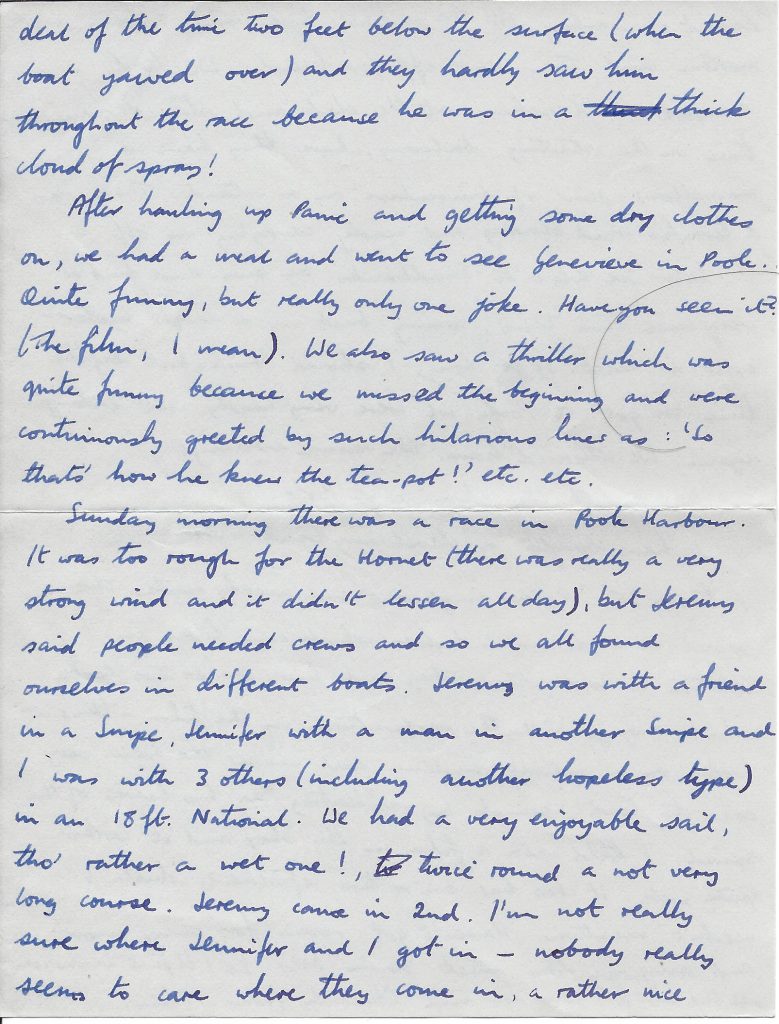 deal of the time two feet below the surface (when the
boat yawed over) and they hardly saw him
throughout the race because he was in a thick
cloud of spray!
After hauling up Panic and getting some dry clothes
on, we had a meal and went to see Genevieve in Poole.
Quite funny, but really only one joke. Have you seen it?
(the film, I mean). We also saw a thriller which was
quite funny because we missed the beginning and were
continuously greeted by such hilarious lines as : 'So
thats' how he knew the tea-pot!' etc. etc.
Sunday morning there was a race in Poole Harbour.
It was too rough for the Hornet (there was really a very
strong wind and it didn't lessen all day), but Jeremy
said people needed crews and so we all found
ourselves in different boats. Jeremy was with a friend
in a Snipe, Jennifer with a man in another Snipe and
I was with 3 others (including another hopeless type)
in an 18ft. National. We had a very enjoyable sail,
tho' rather a wet one!, twice round a not very
long course. Jeremy came in 2nd. I'm not really
sure where Jennifer and I got in – nobody really
seems to care where they come in, a rather nice